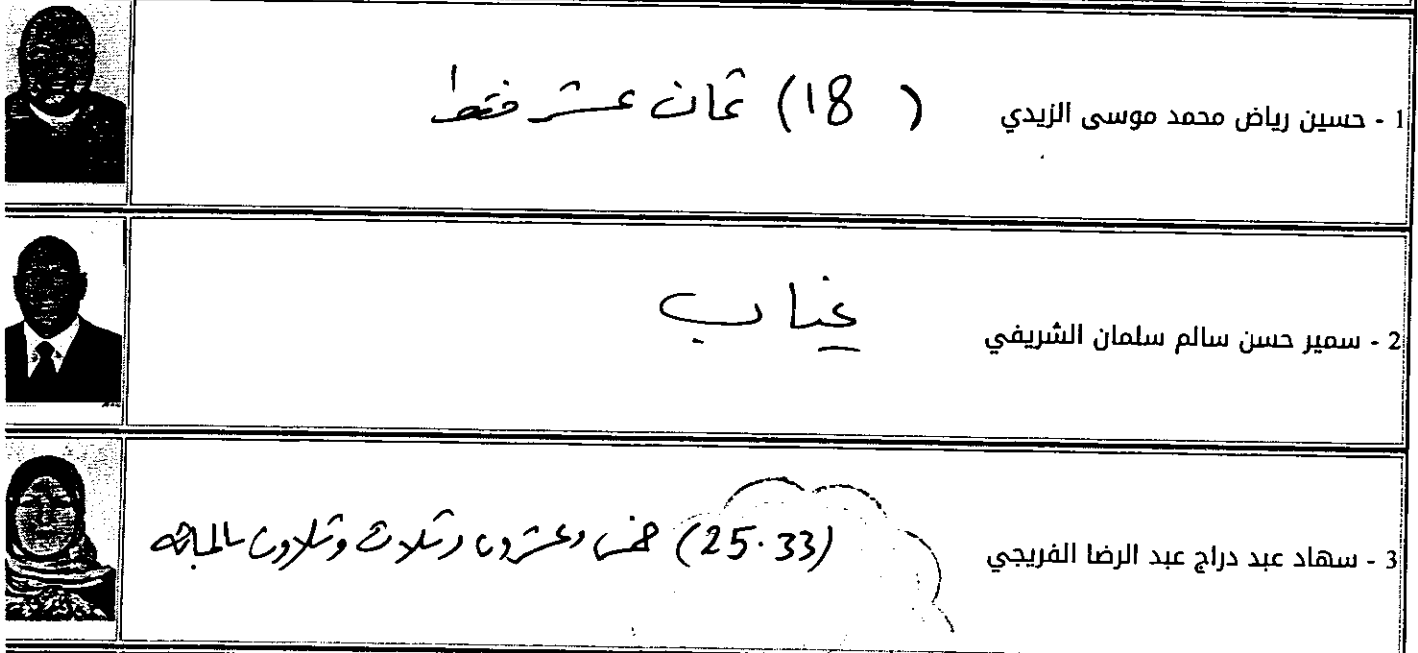 1 - حسين رياض محمد موسى الزيدي ( 18) ثمان عشر فقط
2 - سمير حسن سالم سلمان الشريفي غياب
3 - سهاد عبد دراج عبد الرضا الفريجي (25.33) خمس وعشرون وثلاث وثلاثون بالمائه